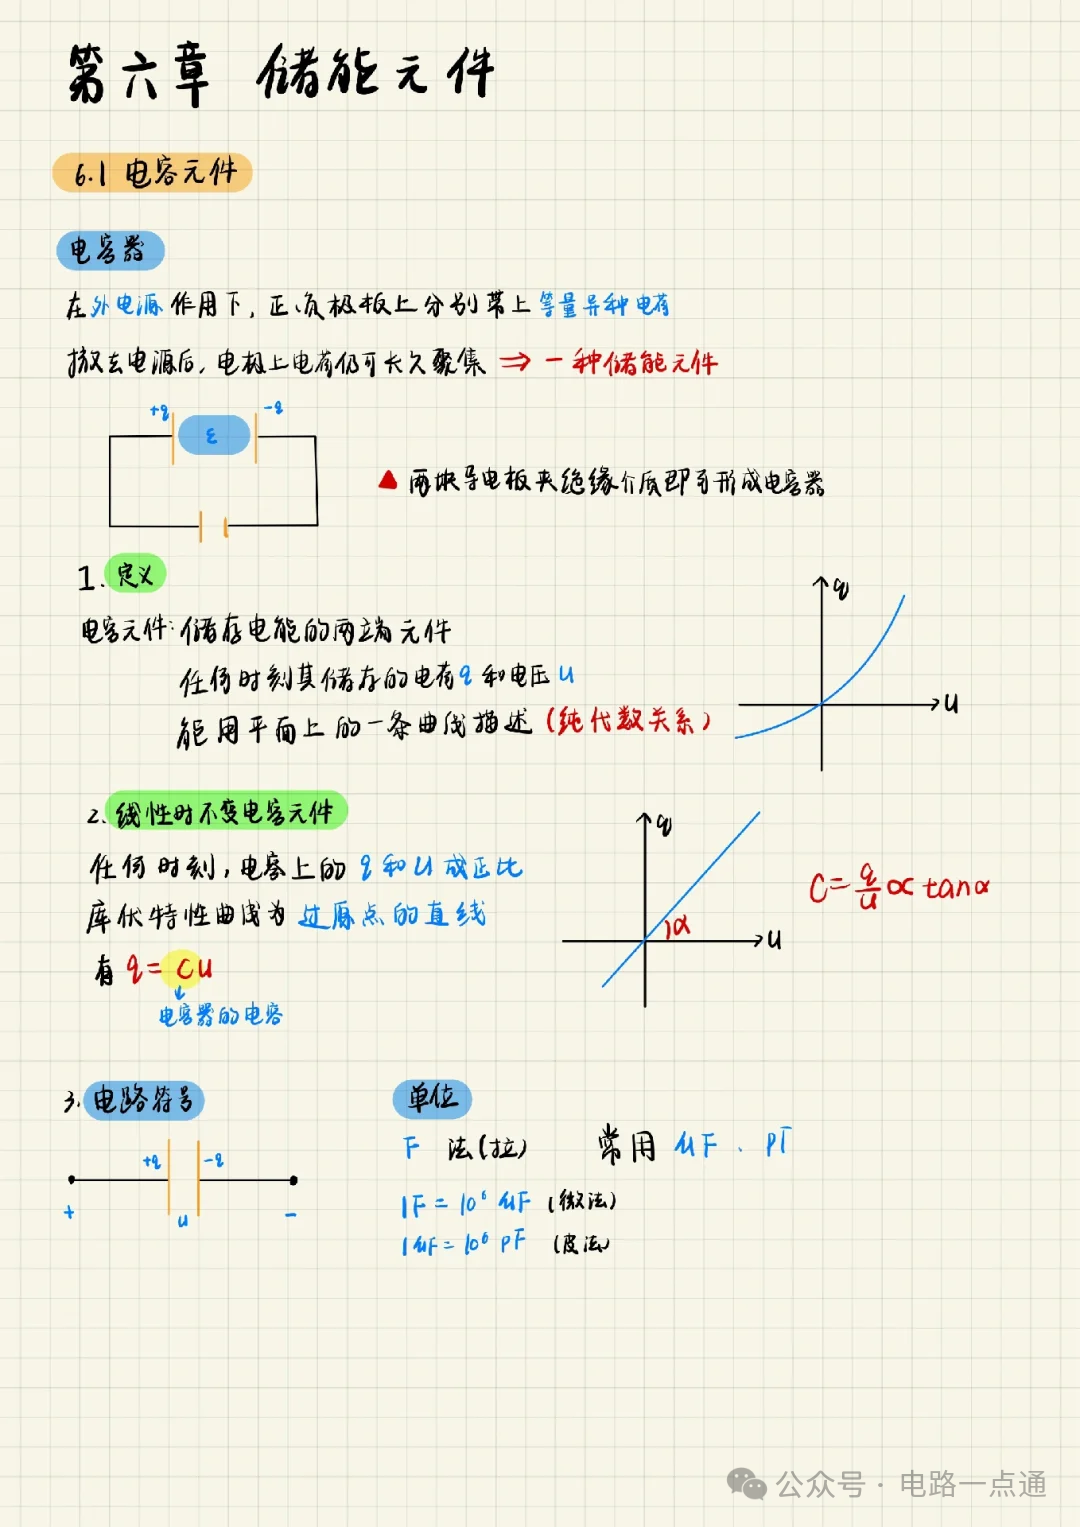 第六章 储能元件
6.1 电容元件
电容器
在外电源作用下，正负极板上分别带上等量异种电荷
撤去电源后，电极上电荷仍可长久聚集 ⇒ 一种储能元件
+q -q
ε
▲ 两块导电板夹绝缘介质即可形成电容器
1. 定义
q
电容元件：储存电能的两端元件
任何时刻其储存的电荷q 和电压 u
u
能用平面上的一条曲线描述（纯代数关系）
2. 线性时不变电容元件
q
任何时刻，电容上的 q 和 u 成正比
C=q/u∝tanα
库伏特性曲线为 过原点的直线
α
u
有 q = Cu
↓
电容器的电容
3. 电路符号
单位
F 法(拉) 常用 μF、pF
+q -q
+ u −
1F = 10⁶ μF (微法)
1μF = 10⁶ pF (皮法)
公众号 · 电路一点通